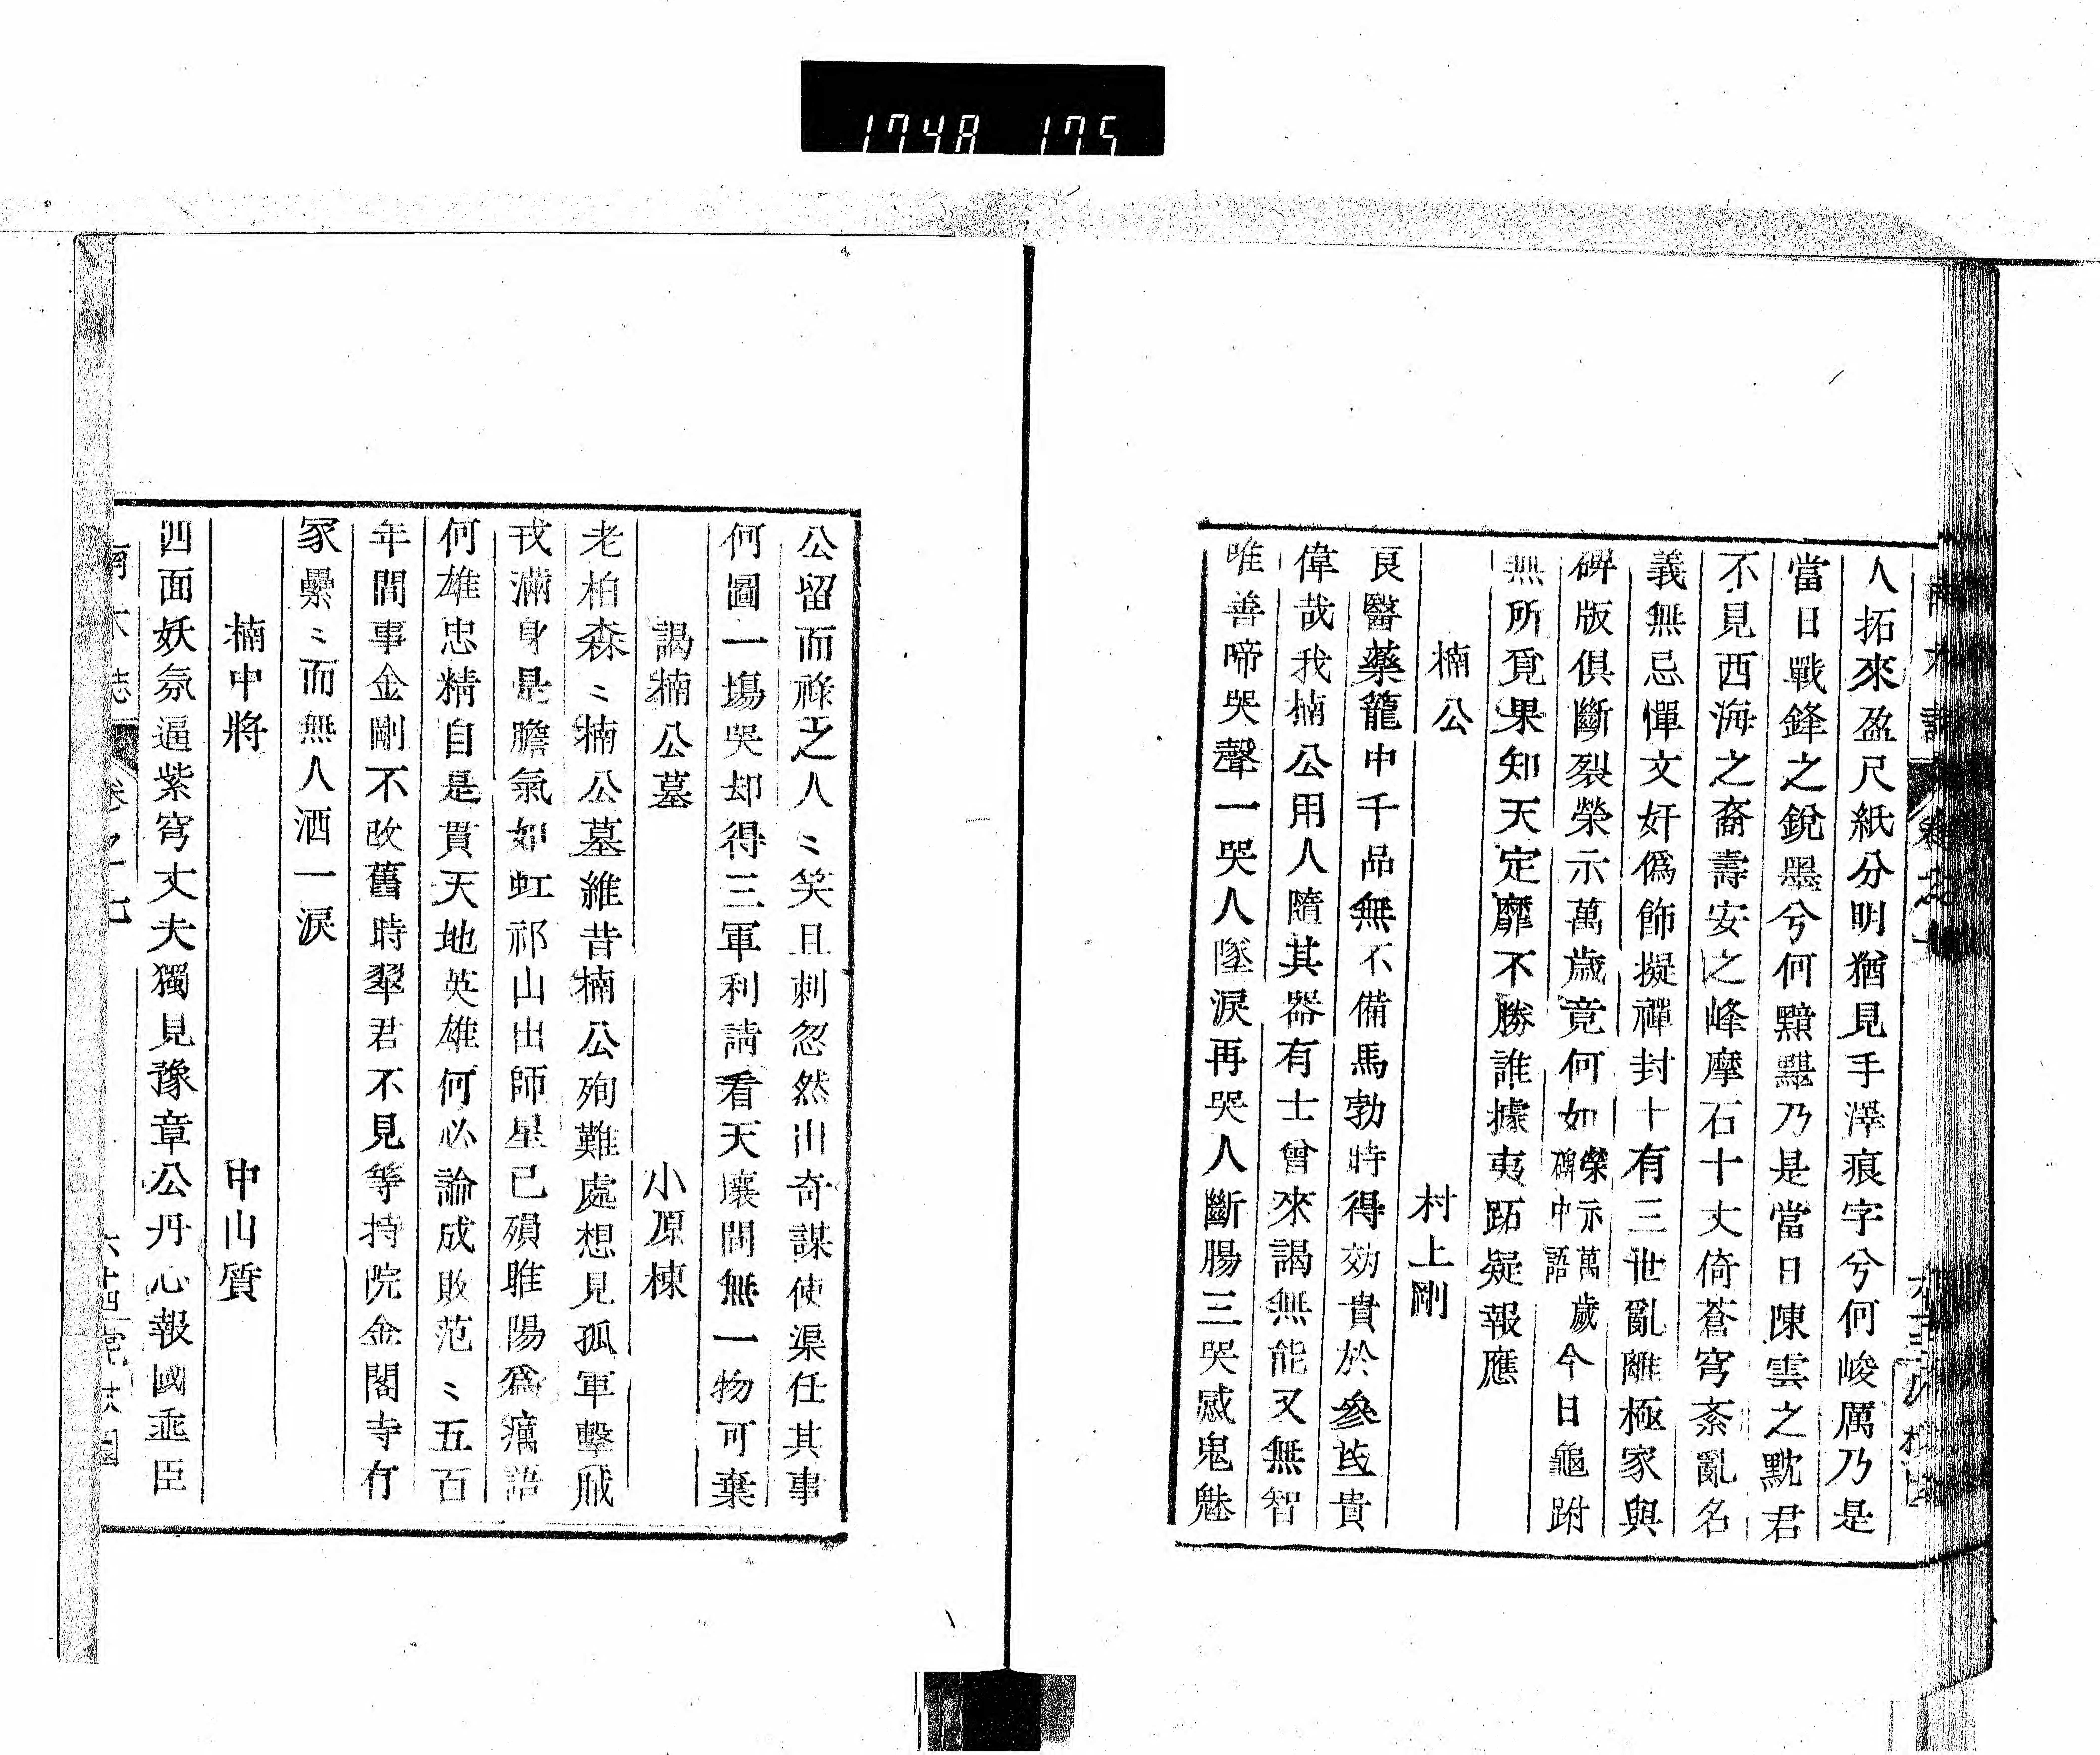 1748 175
人拓來盈尺紙分明猶見手澤痕字兮何峻厲乃是
當日戰鋒之銳墨兮何黯黮乃是當日陳雲之黕君
不見西海之裔壽安之峰摩石十丈倚蒼穹紊亂名
義無忌憚文奸僞飾擬禪封十有三世亂離極家與
碑版俱斷裂榮示萬歲竟何如榮示萬歲碑中語今日龜趺
無所覓果知天定靡不勝誰據夷跖疑報應
楠公 村上剛
良醫藥籠中千品無不備馬勃時得効貴於參芪貴
偉哉我楠公用人隨其器有士曾來謁無能又無智
唯善啼哭聲一哭人墜淚再哭人斷腸三哭感鬼魅
公留而祿之人〻笑且刺忽然出奇謀使渠任其事
何圖一塲哭却得三軍利請看天壤間無一物可棄
謁楠公墓 小原棟
老柏森〻楠公墓維昔楠公殉難處想見孤軍擊賊
戎滿身是膽氣如虹祁山出師星已殞睢陽爲癘語
何雄忠精自是貫天地英雄何必論成敗范〻五百
年間事金剛不改舊時翠君不見等持院金閣寺有
冢纍〻而無人洒一淚
楠中將 中山質
四面妖氛逼紫穹丈夫獨見豫章公丹心報國垂臣
南木誌 卷之七